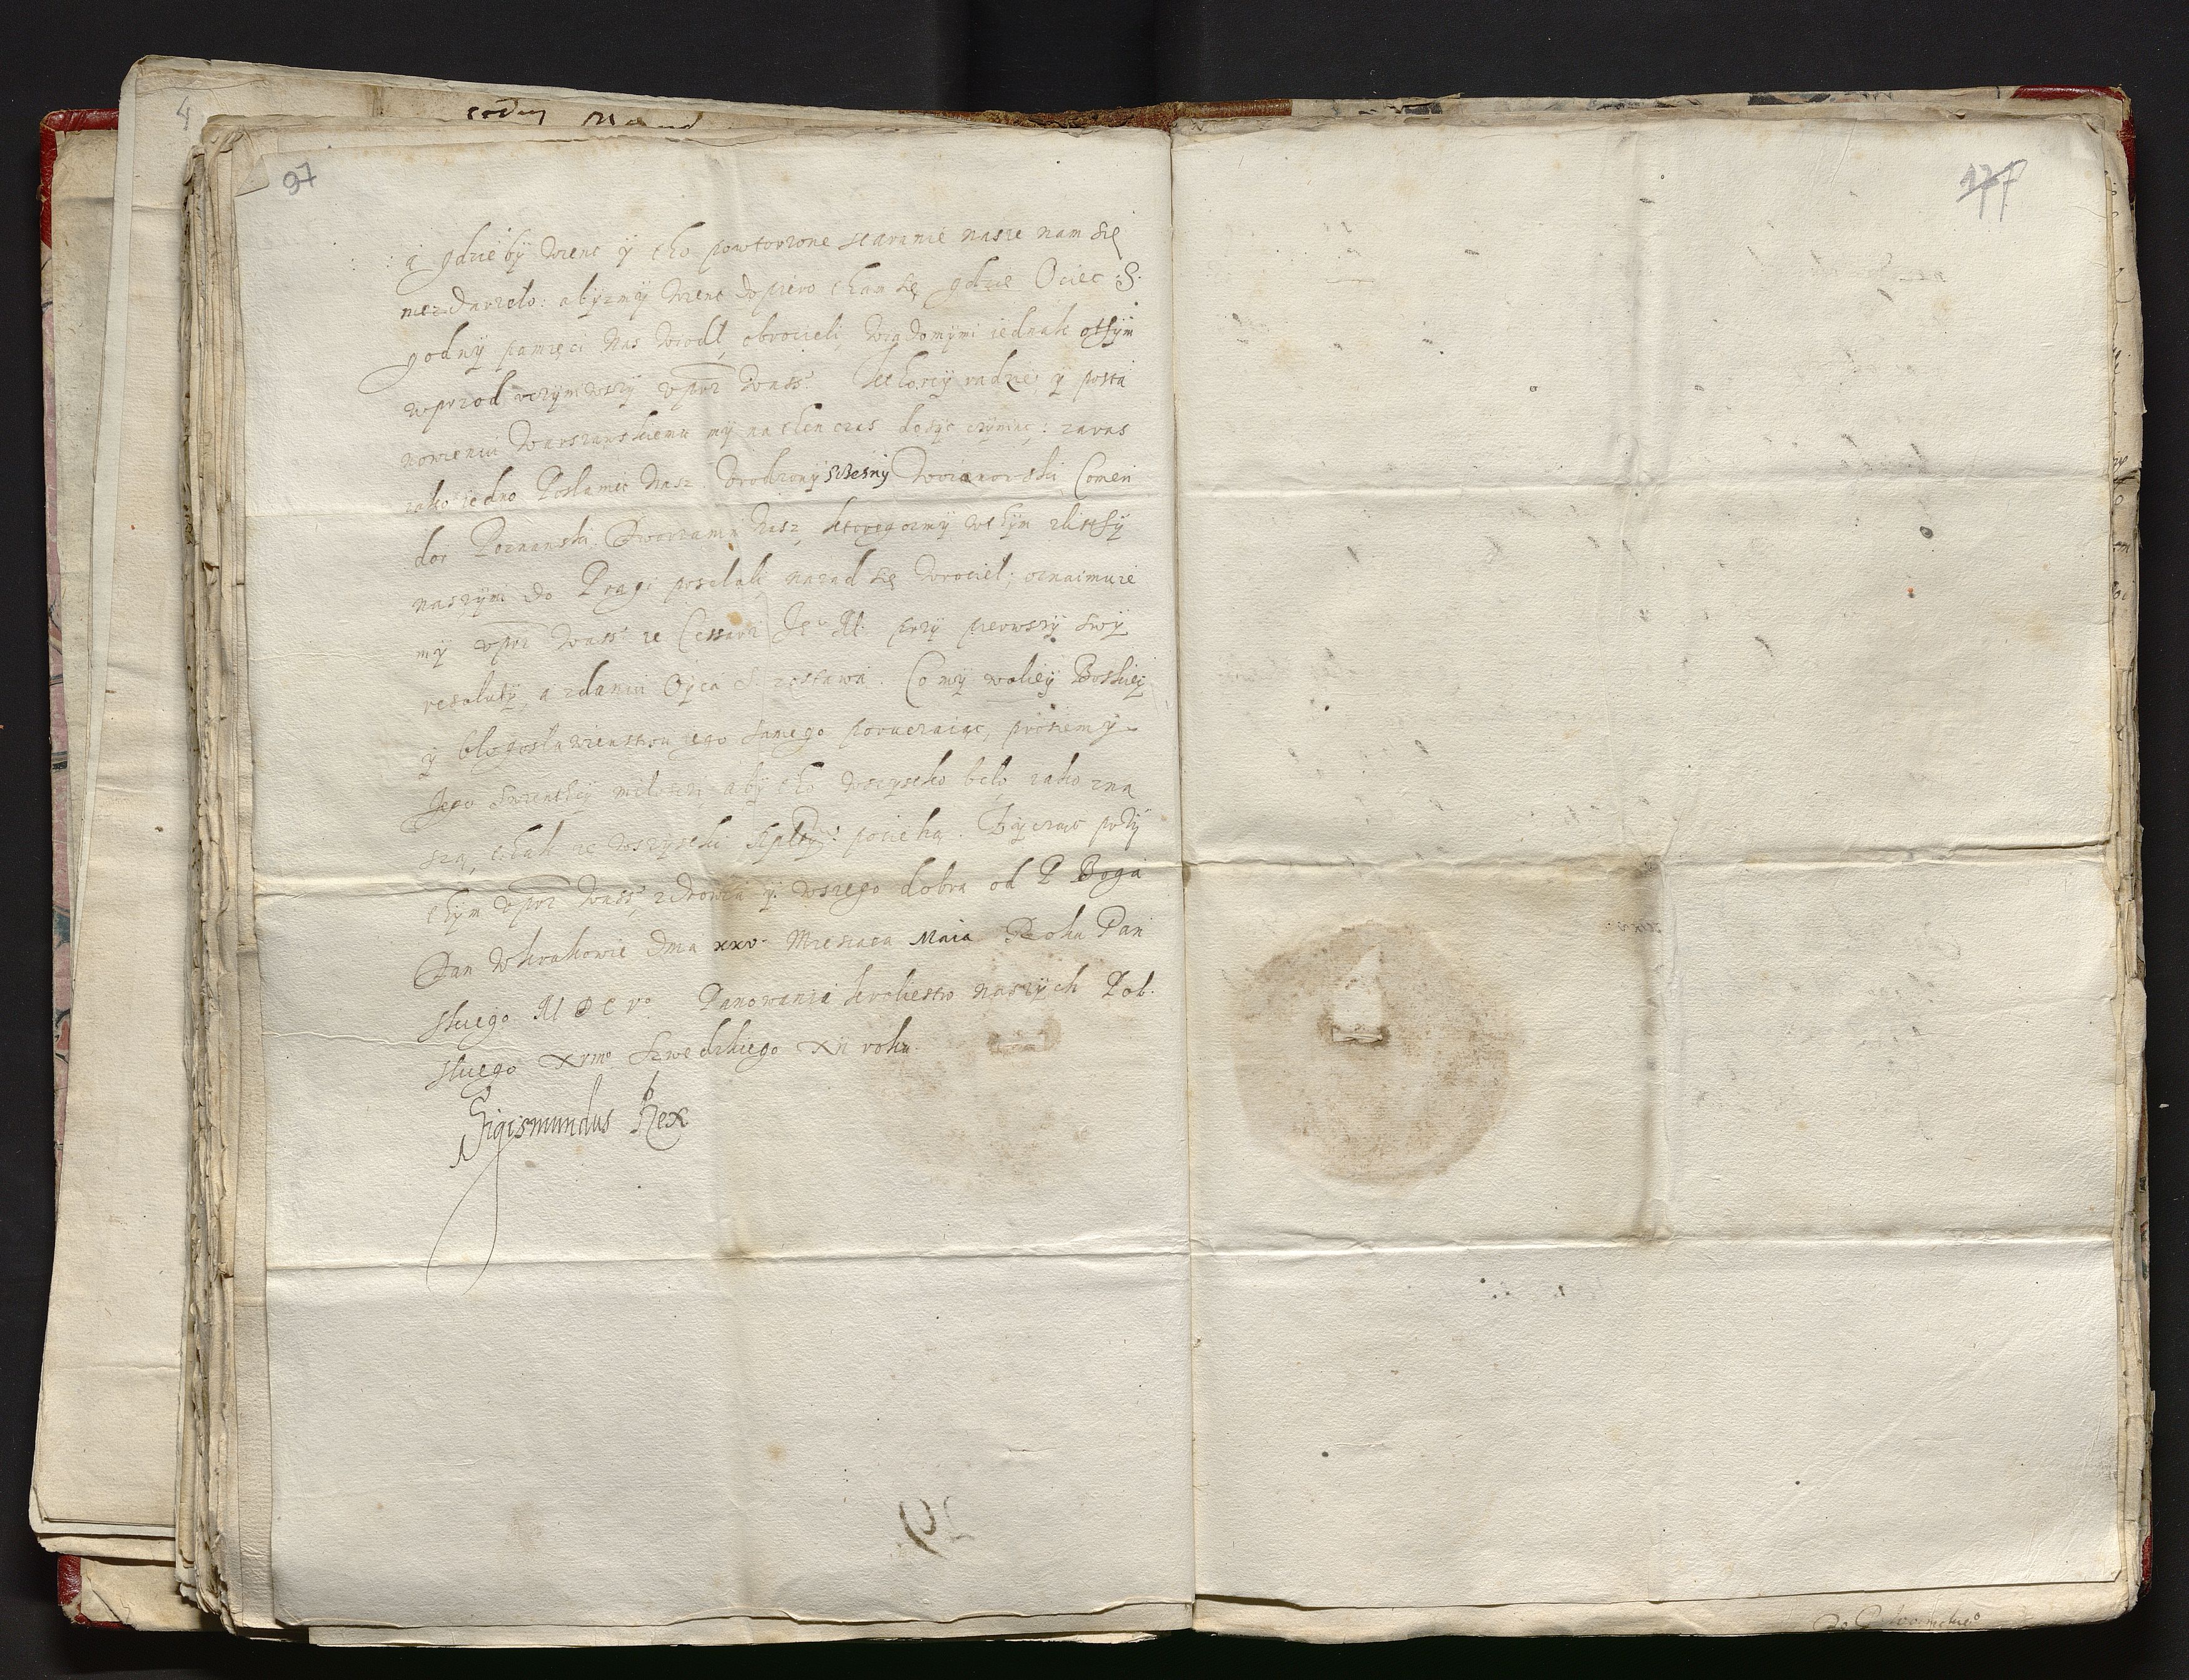 4
97
177
a gdzieby wienc y tho powtorzone staranie nasze nam się
niezdarzeło: abyzmy wienc dopiero tham się gdzie Ociec S.
godny pamięci nas wiodł, obrocieli, wiadomymi iednak othym
wprzod uczyniwszy uprz wass: Kthorey radzie y posta
nowieniu Warszawskiemu my na then czas dosyc czyniąc: zaras
iako iedno Posłaniec nasz Urodzony Sczesny Dworzanowski Comen
dor Poznanski, Dworzanin Nasz, ktoregozmy wthym zlisthy
naszymi do Pragi posełali, nazad się wrocieł; oznaimuie
my uprz wass: ze Cessarz Je° M. przy pierwszy swy
resoluty, a zdaniu Oyca S. zostawa. Co my woliey Boskiej
y błogosławienstwu iego samego poruczaiąc, prosiemy
Jego Swienthey miłosci aby tho wszystko beło iako zna
szą, thak ze wszystki Rplthy: pociehą. Zyczac przy
thym uprz wass, zdrowia y wszego dobra od P Boga
Dan wKrakowie dnia xxv. Miesiaca Maia Roku Pan
skiego M D C V° Panowania krolestw naszych Pol.
skiego XVIII° Szwedzkiego XII roku.
Sigismundus Rex
29